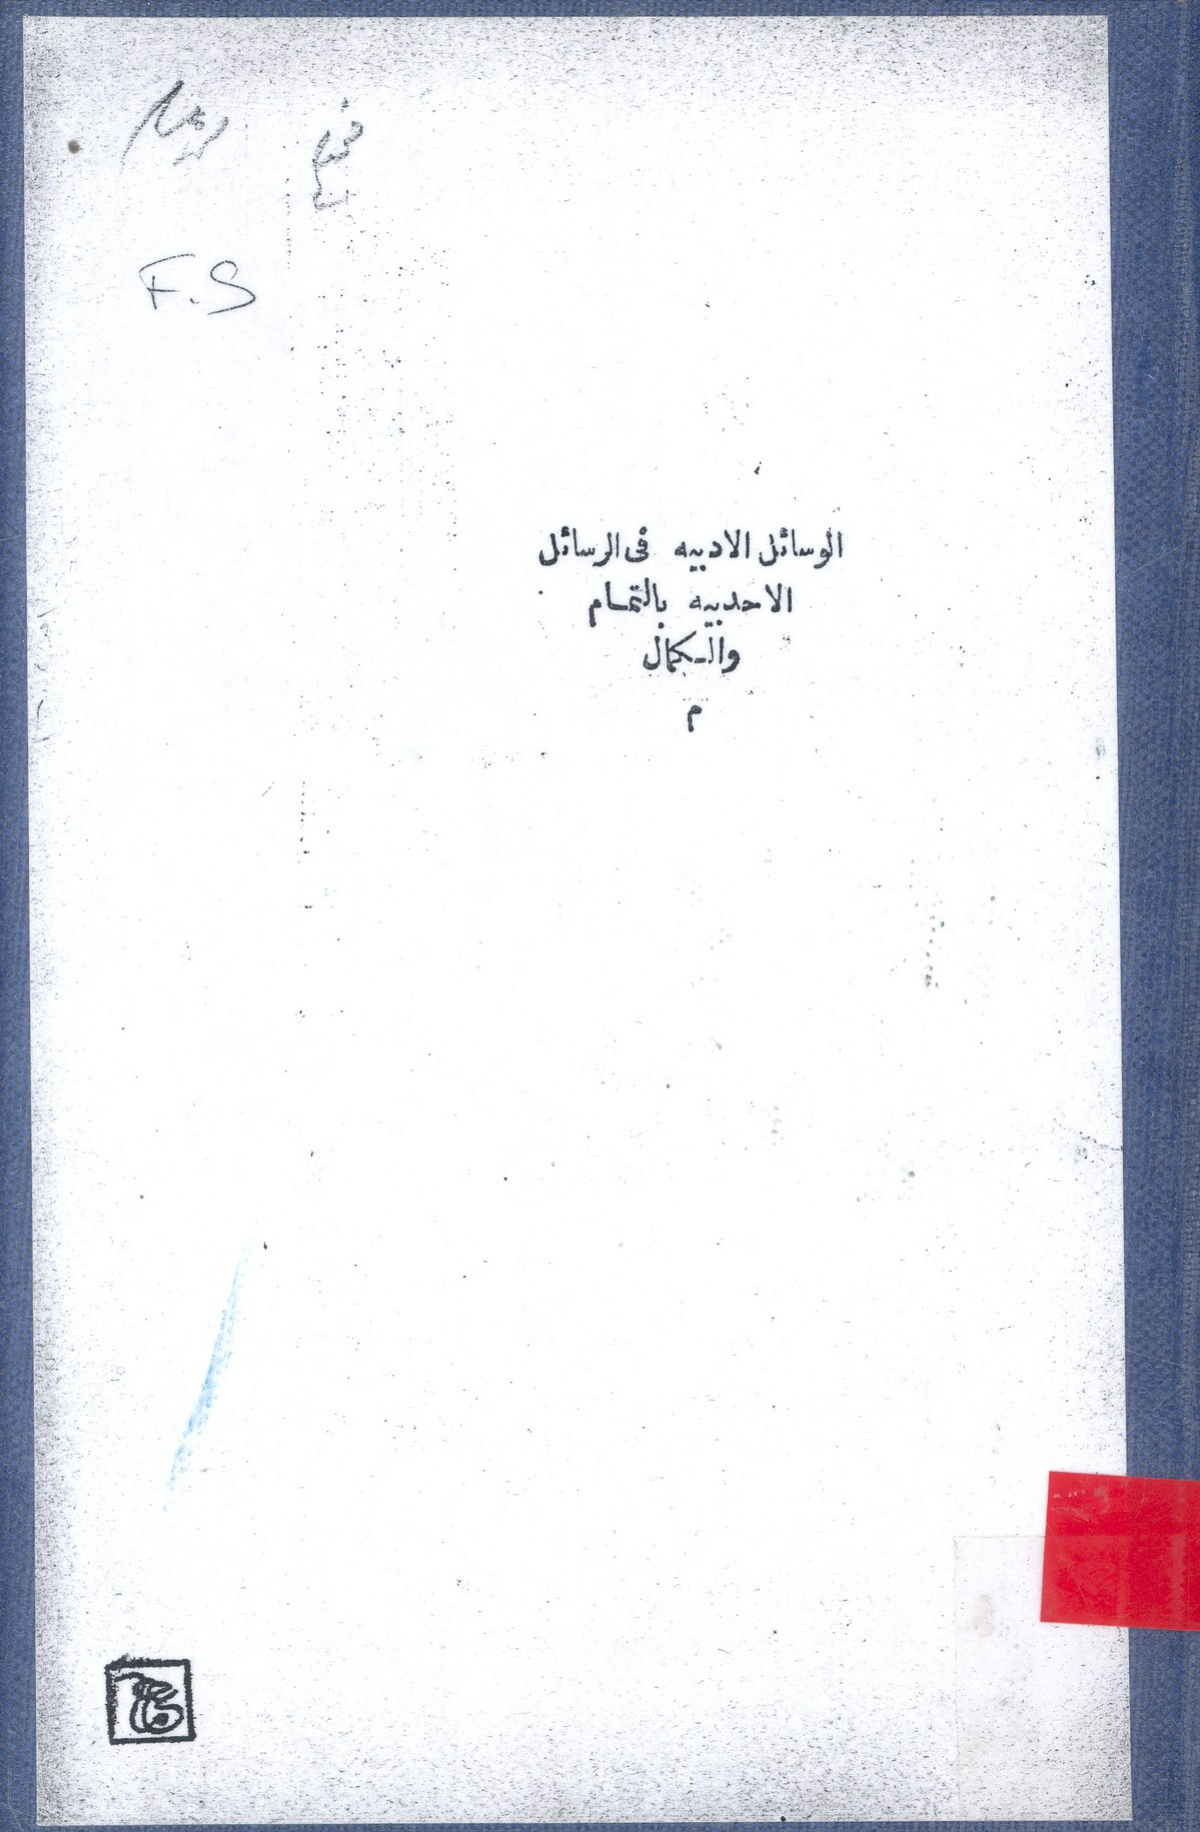 F.S
الوسائل الادبيه فى الرسائل
الاحدبيه بالتمام
والكمال
م